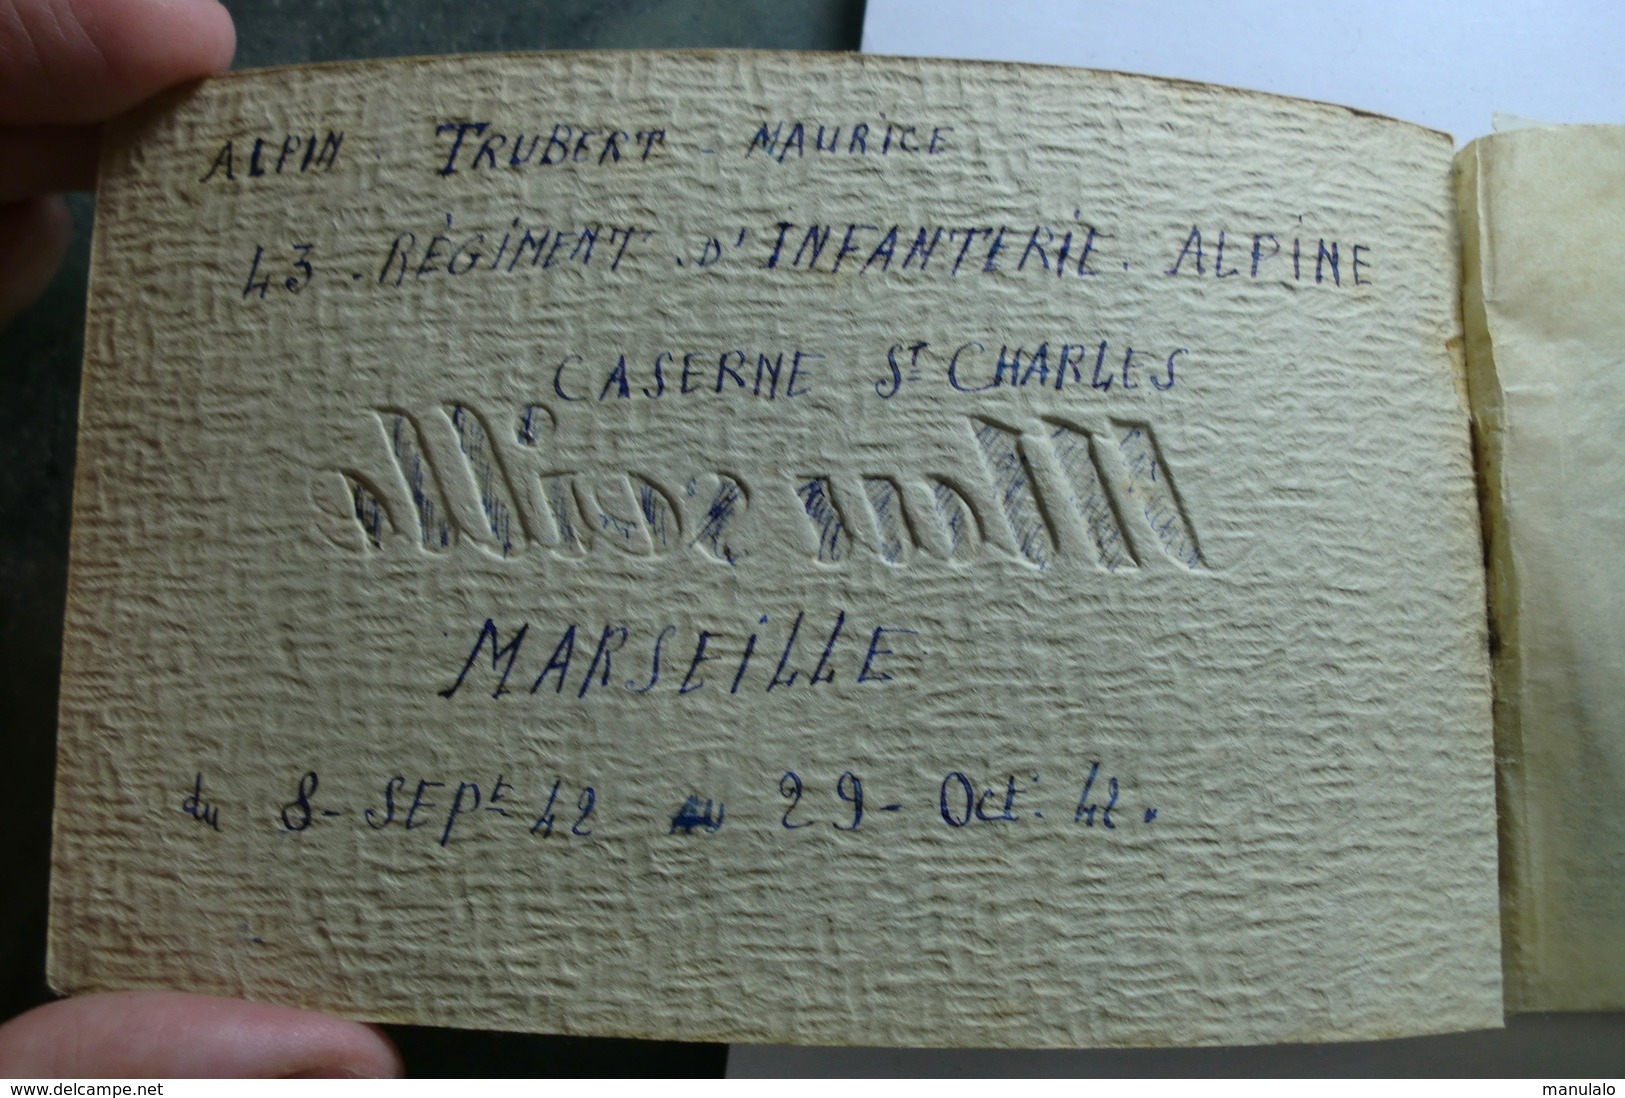 ALPIN - TRUBERT - MAURICE
43 - RÉGIMENT D'INFANTERIE. ALPINE
CASERNE ST CHARLES
MARSEILLE
du 8 - SEPTE 42 AU 29 - Oct. 42.
www.delcampe.net
manulalo